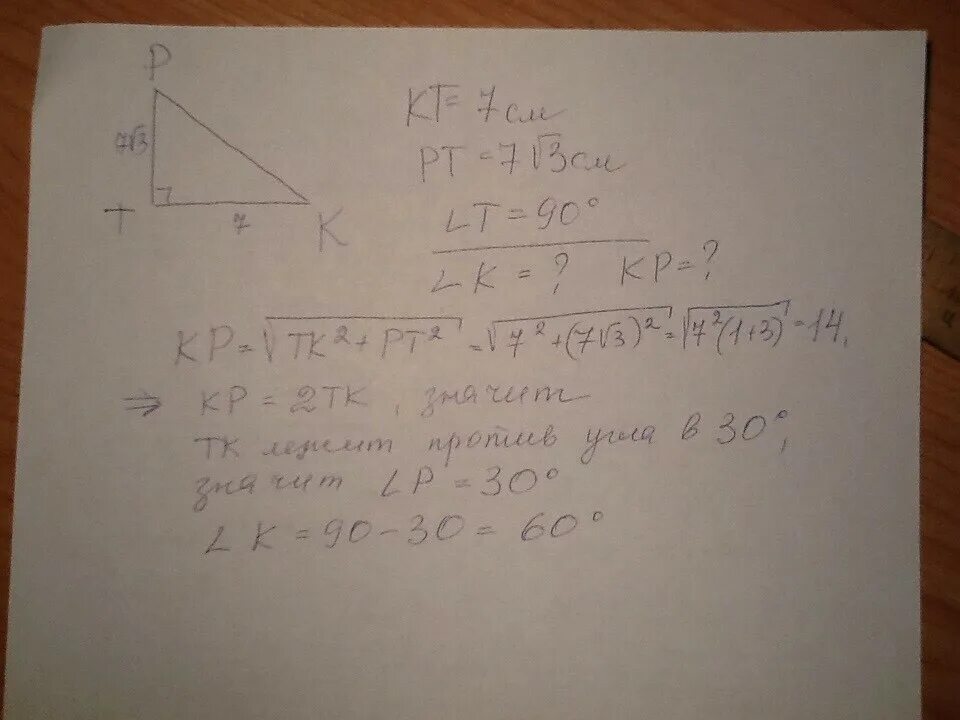 P
7√3
T
7
K
KT = 7 см
PT = 7√3 см
∠T = 90°
∠K = ? KP = ?
KP = √TK² + PT² = √7² + (7√3)² = √7²(1+3) = 14,
⇒ KP = 2TK, значит
TK лежит против угла в 30°,
значит ∠P = 30°
∠K = 90 − 30 = 60°